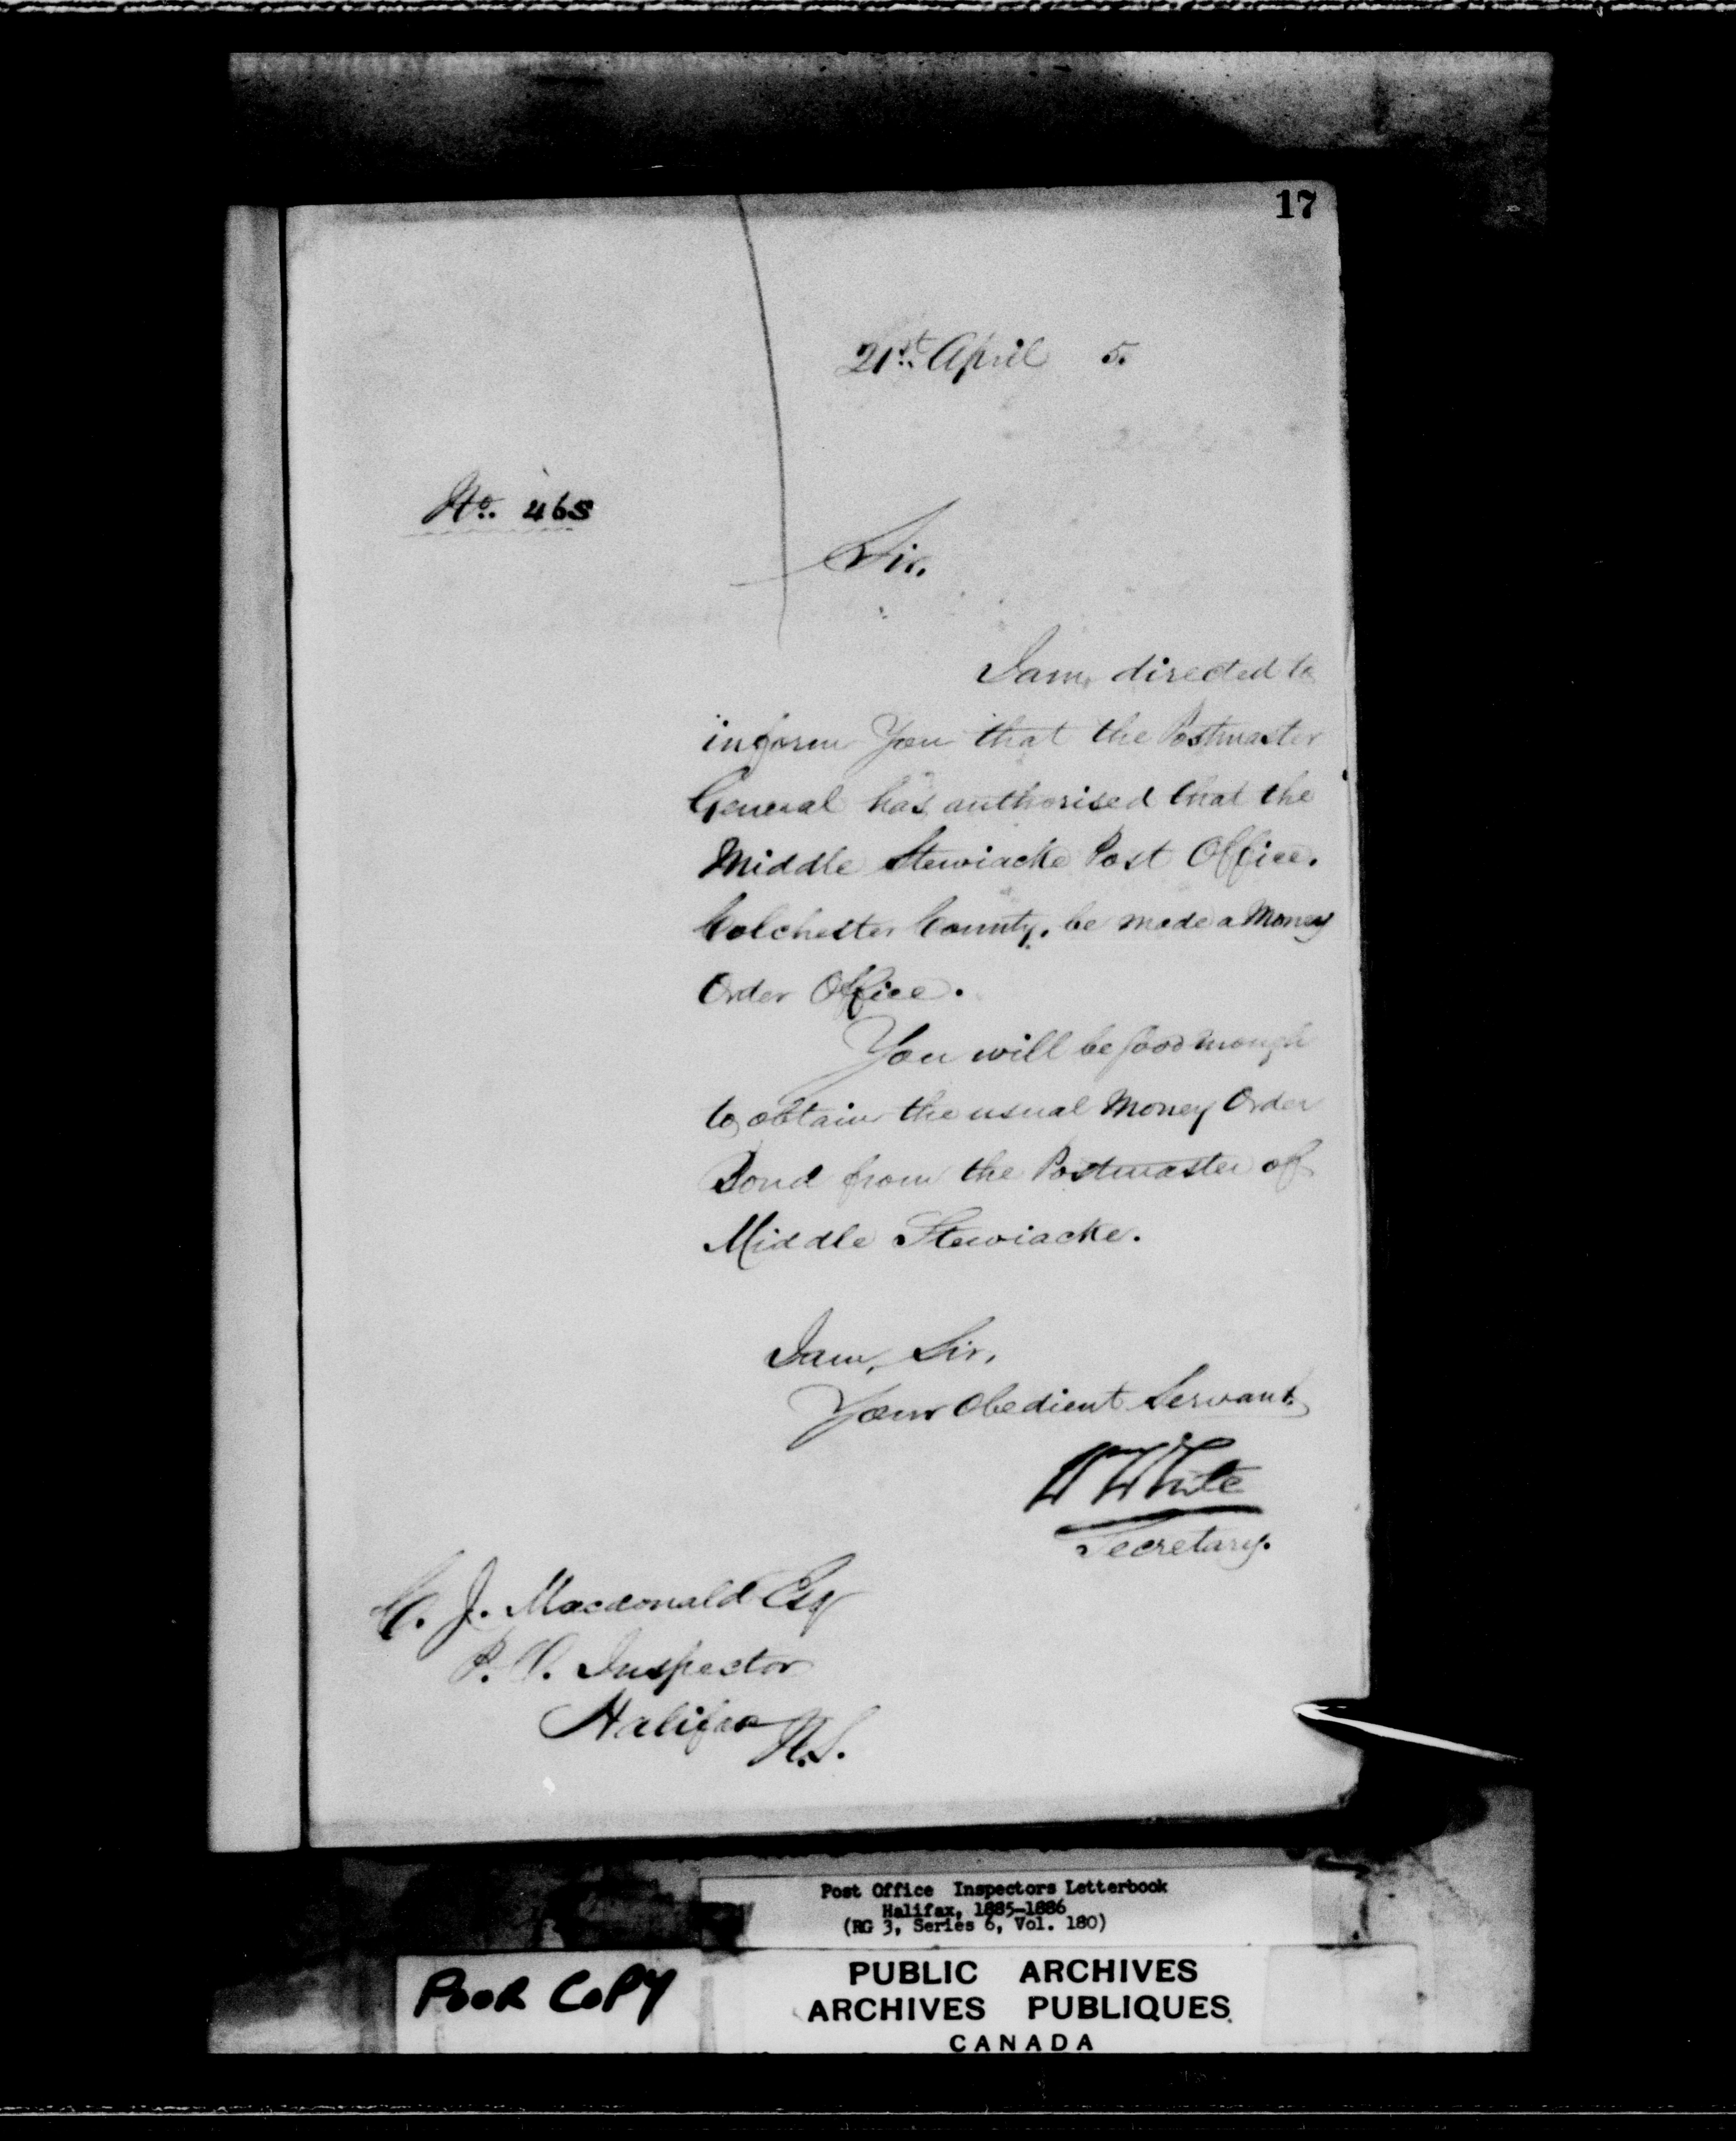 17
21st. April 5.
No. 468
Sir.
I am, directed to
inform You that the Postmaster
General has authorised that the
Middle Stewiacke Post Office.
Colchester County, be made a Money
Order Office.
You will be good enough
to obtain the usual Money Order
Bond from the Postmaster of
Middle Stewiacke.
I am, Sir,
Your Obedient Servant.
W White
Secretary.
C. J. Macdonald Esq
P. O. Inspector
Halifax N.S.
Post Office Inspectors Letterbook
Halifax, 1885-1886
(RG 3, Series 6, Vol. 180)
POOR COPY
PUBLIC ARCHIVES
ARCHIVES PUBLIQUES
CANADA